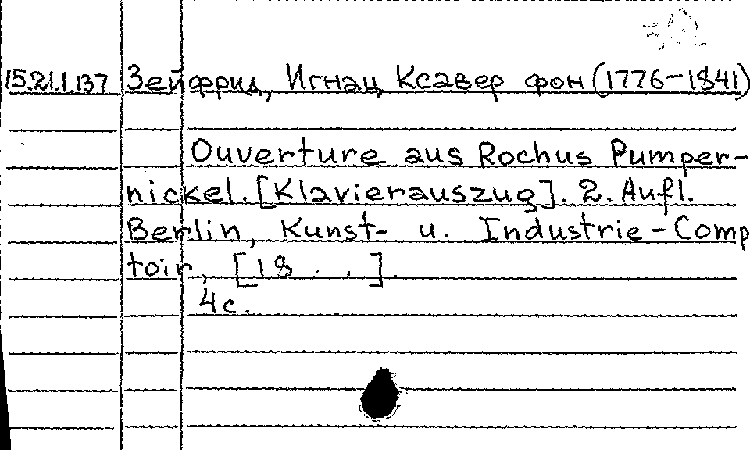 15.21.1.137 Зейфрид, Игнац Ксавер фон (1776-1841)
Ouverture aus Rochus Pumper-
nickel. [Klavierauszug]. 2. Aufl.
Berlin, Kunst- u. Industrie-Comp
toir, [18 . .].
4 с.